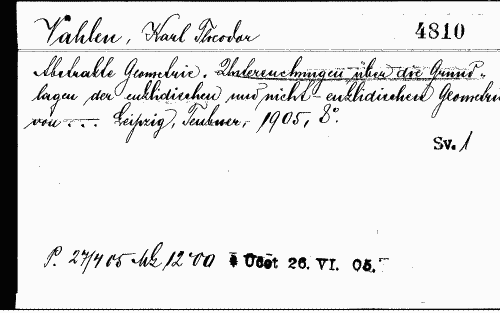 Vahlen, Karl Theodor 4810
Abstrakte Geometrie. Untersuchungen über die Grund-
lagen der euklidischen und nicht-euklidischen Geometrie
von ... Leipzig, Teubner, 1905, 8°.
Sv. 1
P. 27/4 05 Mk 12·00 Účet 26. VI. 05.